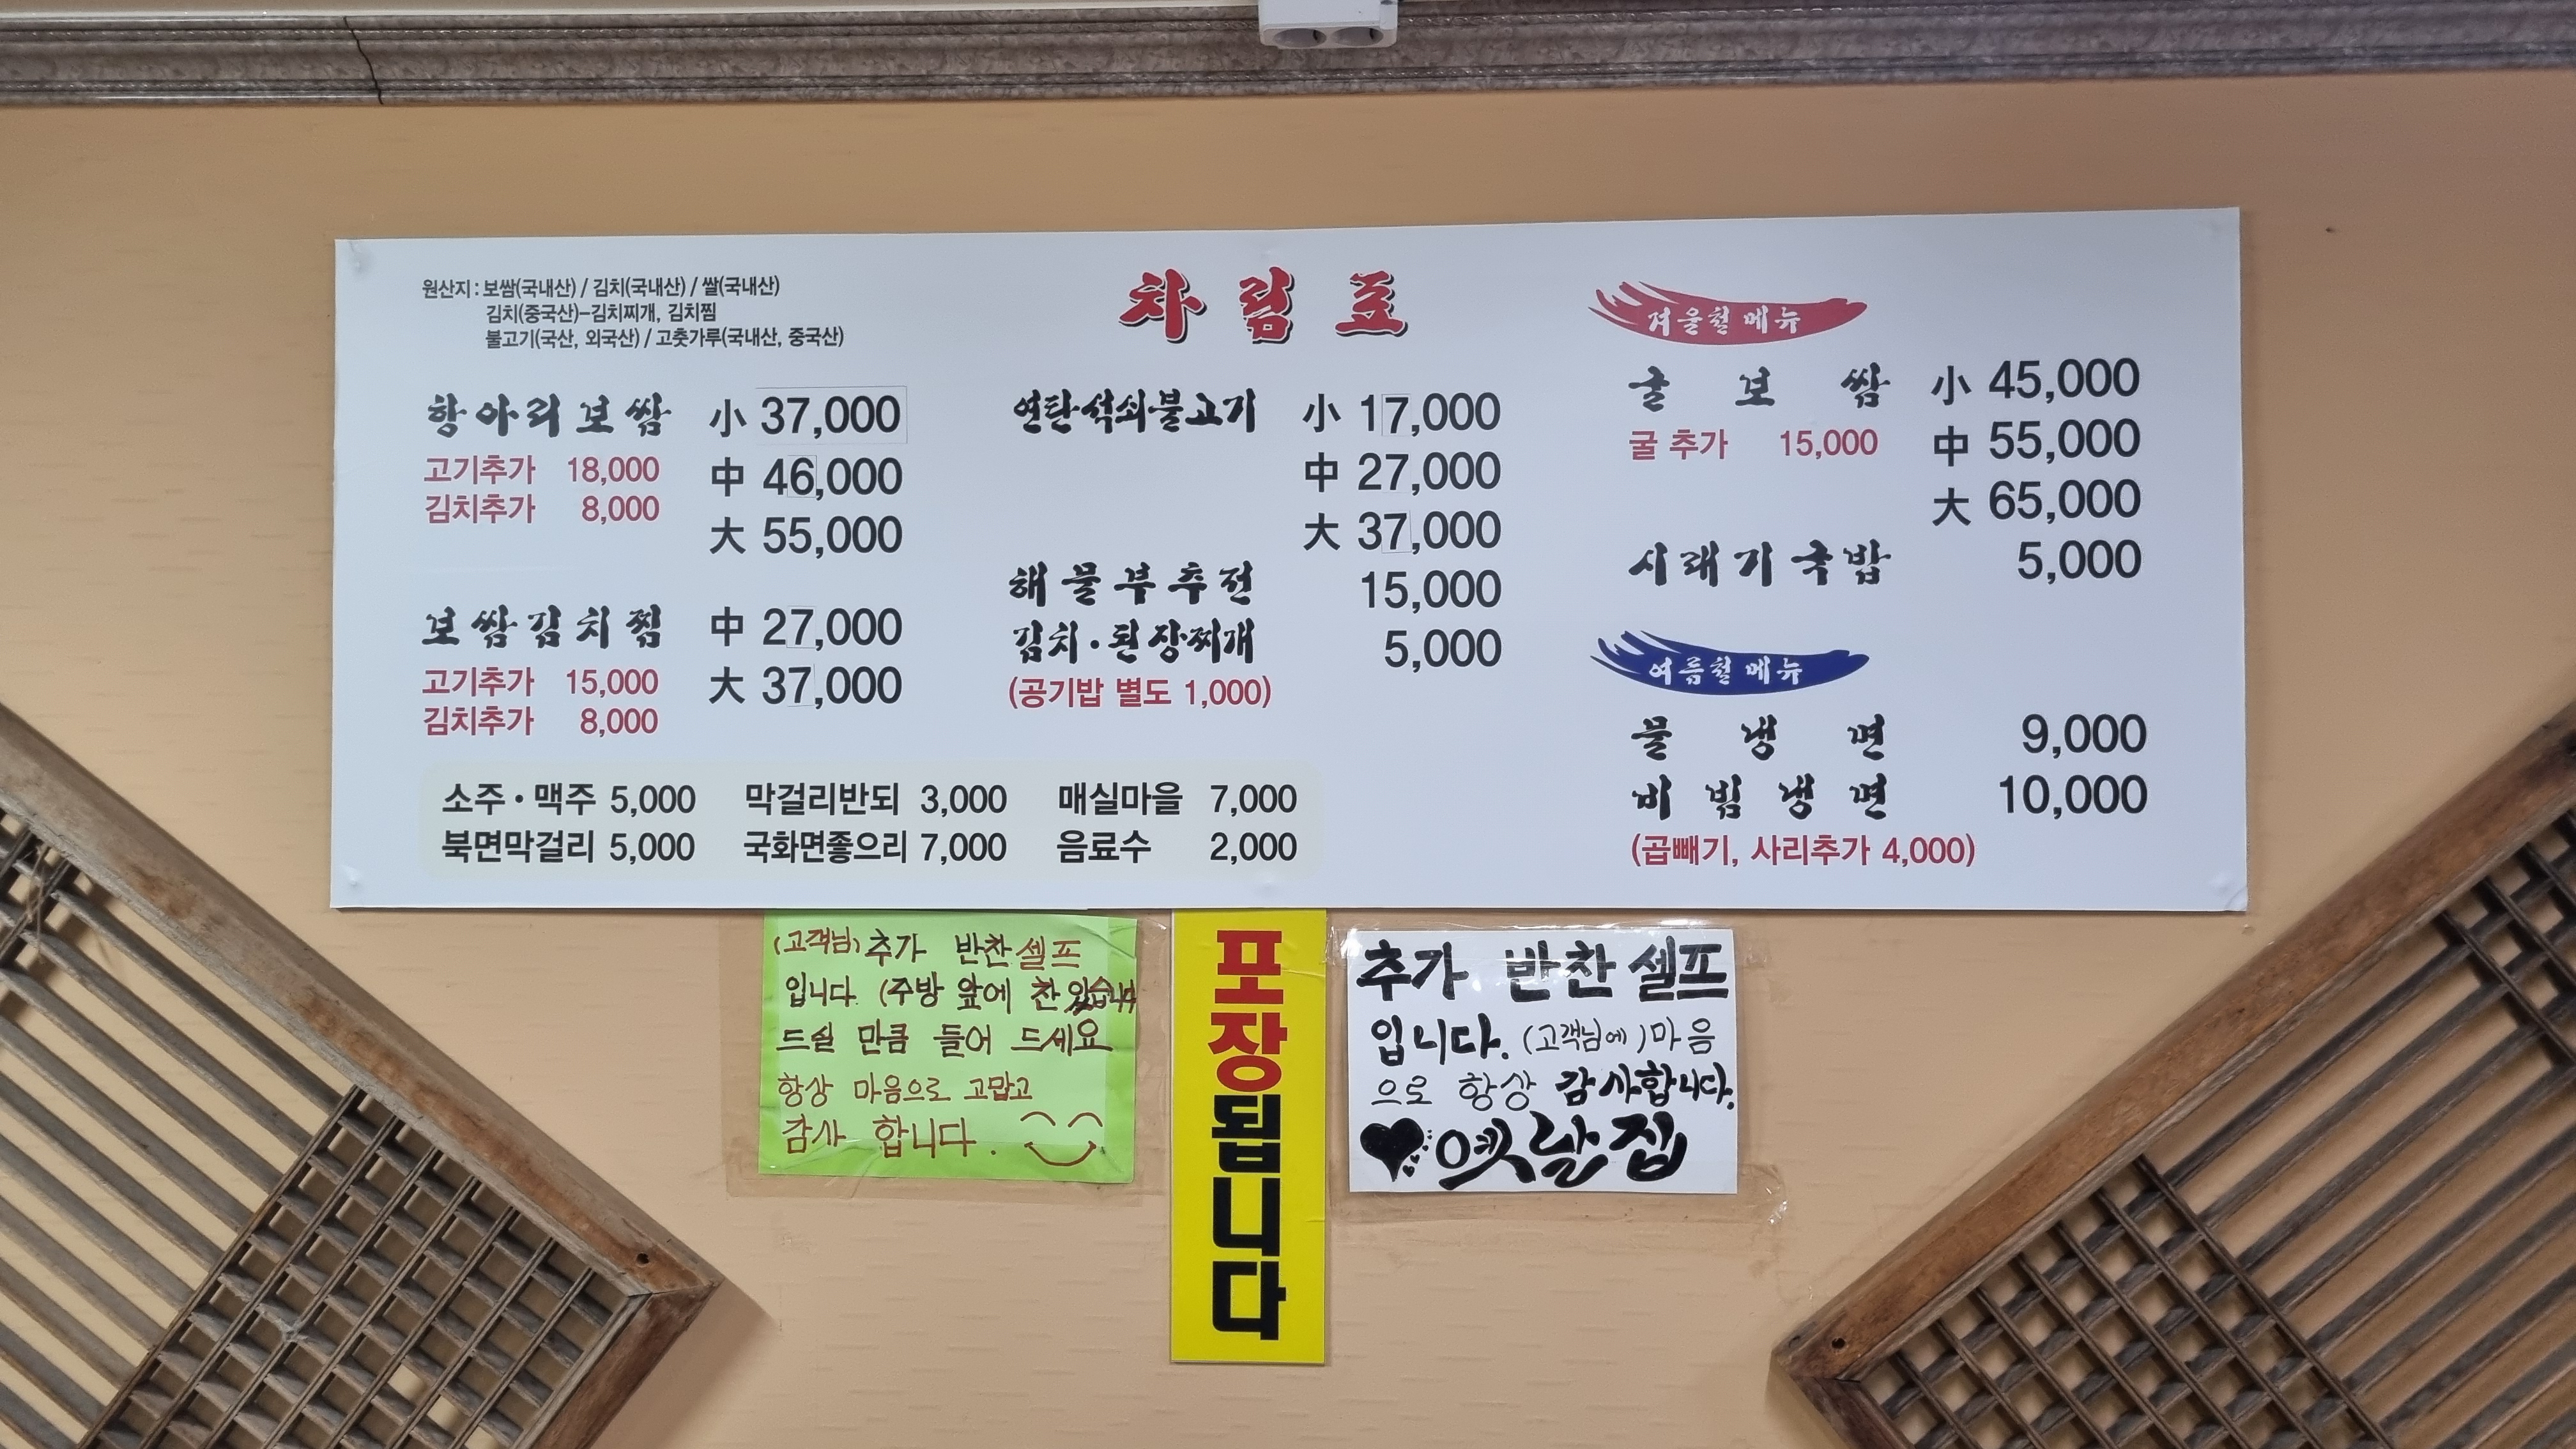 차림표
원산지 : 보쌈(국내산) / 김치(국내산) / 쌀(국내산)
김치(중국산)-김치찌개, 김치찜
불고기(국산, 외국산) / 고춧가루(국내산, 중국산)
항아리보쌈 小 37,000
고기추가 18,000 中 46,000
김치추가 8,000
大 55,000
보쌈김치찜 中 27,000
고기추가 15,000 大 37,000
김치추가 8,000
연탄석쇠불고기 小 17,000
中 27,000
大 37,000
해물부추전 15,000
김치·된장찌개 5,000
(공기밥 별도 1,000)
소주·맥주 5,000 막걸리반되 3,000 매실마을 7,000
북면막걸리 5,000 국화면좋으리 7,000 음료수 2,000
겨울철메뉴
굴보쌈 小 45,000
굴 추가 15,000 中 55,000
大 65,000
시래기국밥 5,000
여름철메뉴
물냉면 9,000
비빔냉면 10,000
(곱빼기, 사리추가 4,000)
(고객님) 추가 반찬 셀프
입니다. (주방 앞에 찬 있습니다
드실 만큼 들어 드세요
항상 마음으로 고맙고
감사 합니다.
포장됩니다
추가 반찬 셀프
입니다. (고객님에) 마음
으로 항상 감사합니다.
옛날집